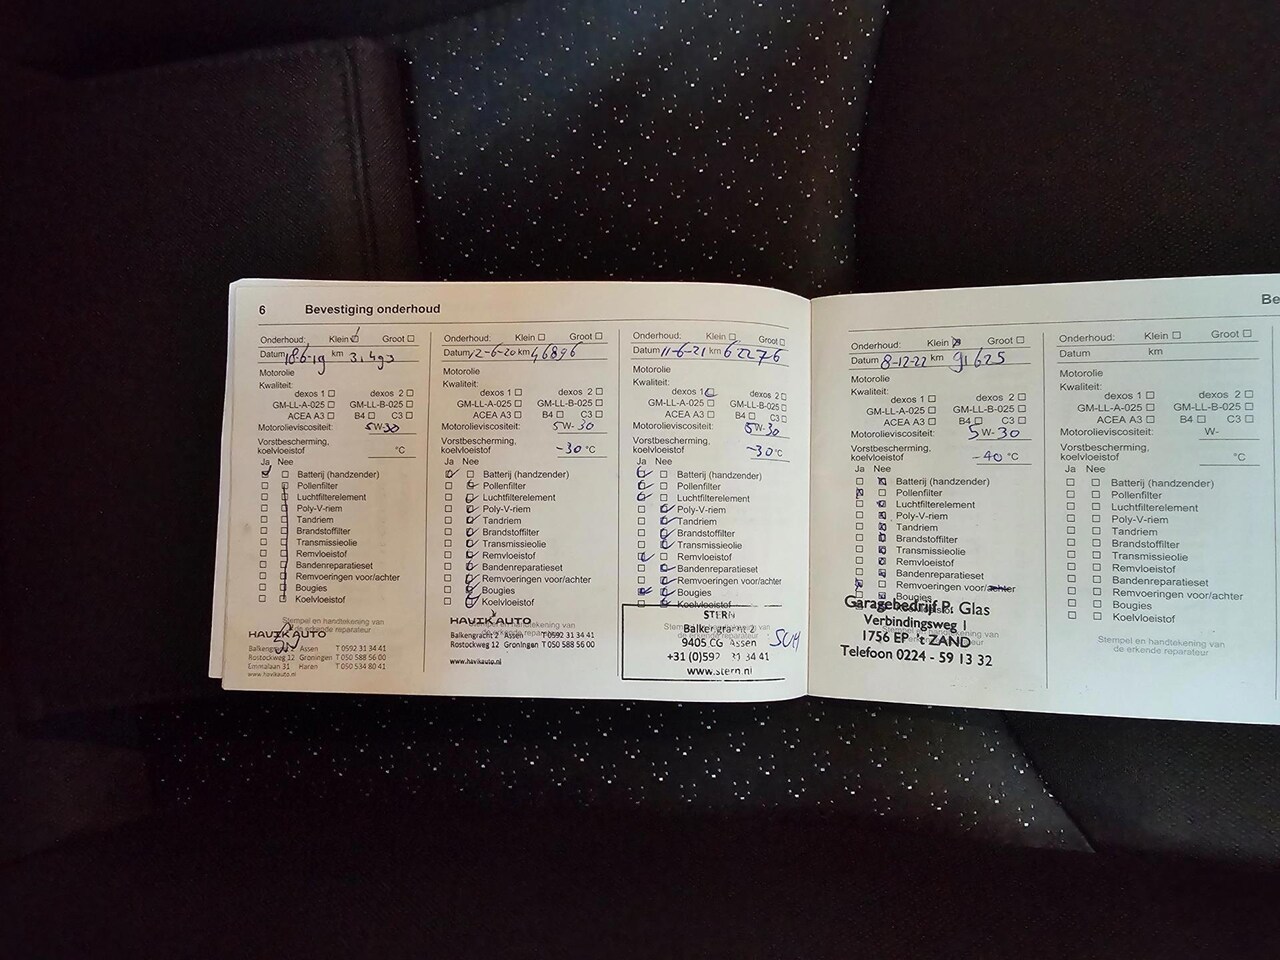 6 Bevestiging onderhoud
Onderhoud: Klein ☑ Groot ☐
Datum 18-6-19 km 31493
Motorolie
Kwaliteit:
dexos 1 ☐ dexos 2 ☐
GM-LL-A-025 ☐ GM-LL-B-025 ☐
ACEA A3 ☐ B4 ☐ C3 ☐
Motorolieviscositeit: 5W-30
Vorstbescherming,
koelvloeistof °C
Ja Nee
Batterij (handzender)
Pollenfilter
Luchtfilterelement
Poly-V-riem
Tandriem
Brandstoffilter
Transmissieolie
Remvloeistof
Bandenreparatieset
Remvoeringen voor/achter
Bougies
Koelvloeistof
Stempel en handtekening van
de erkende reparateur
HAVIK AUTO
Balkengracht 2 Assen T 0592 31 34 41
Rostockweg 12 Groningen T 050 588 56 00
Emmalaan 31 Haren T 050 534 80 41
www.havikauto.nl
Onderhoud: Klein ☐ Groot ☐
Datum 12-6-20 km 46896
Motorolie
Kwaliteit:
dexos 1 ☐ dexos 2 ☐
GM-LL-A-025 ☐ GM-LL-B-025 ☐
ACEA A3 ☐ B4 ☐ C3 ☐
Motorolieviscositeit: 5W-30
Vorstbescherming,
koelvloeistof -30 °C
Ja Nee
Batterij (handzender)
Pollenfilter
Luchtfilterelement
Poly-V-riem
Tandriem
Brandstoffilter
Transmissieolie
Remvloeistof
Bandenreparatieset
Remvoeringen voor/achter
Bougies
Koelvloeistof
Stempel en handtekening van
de erkende reparateur
HAVIK AUTO
Balkengracht 2 Assen T 0592 31 34 41
Rostockweg 12 Groningen T 050 588 56 00
www.havikauto.nl
Onderhoud: Klein ☐ Groot ☐
Datum 11-6-21 km 62276
Motorolie
Kwaliteit:
dexos 1 ☑ dexos 2 ☐
GM-LL-A-025 ☐ GM-LL-B-025 ☐
ACEA A3 ☐ B4 ☐ C3 ☐
Motorolieviscositeit: 5W-30
Vorstbescherming,
koelvloeistof -30 °C
Ja Nee
Batterij (handzender)
Pollenfilter
Luchtfilterelement
Poly-V-riem
Tandriem
Brandstoffilter
Transmissieolie
Remvloeistof
Bandenreparatieset
Remvoeringen voor/achter
Bougies
Koelvloeistof
STERN
Balkengracht 2
9405 CG Assen
+31 (0)592 31 34 41
www.stern.nl
Onderhoud: Klein ☒ Groot ☐
Datum 8-12-22 km 91625
Motorolie
Kwaliteit:
dexos 1 ☐ dexos 2 ☐
GM-LL-A-025 ☐ GM-LL-B-025 ☐
ACEA A3 ☐ B4 ☐ C3 ☐
Motorolieviscositeit: 5W-30
Vorstbescherming,
koelvloeistof -40 °C
Ja Nee
Batterij (handzender)
Pollenfilter
Luchtfilterelement
Poly-V-riem
Tandriem
Brandstoffilter
Transmissieolie
Remvloeistof
Bandenreparatieset
Remvoeringen voor/achter
Bougies
Garagebedrijf P. Glas
Verbindingsweg 1
1756 EP 't ZAND
Telefoon 0224 - 59 13 32
Be
Onderhoud: Klein ☐ Groot ☐
Datum km
Motorolie
Kwaliteit:
dexos 1 ☐ dexos 2 ☐
GM-LL-A-025 ☐ GM-LL-B-025 ☐
ACEA A3 ☐ B4 ☐ C3 ☐
Motorolieviscositeit: W-
Vorstbescherming,
koelvloeistof °C
Ja Nee
Batterij (handzender)
Pollenfilter
Luchtfilterelement
Poly-V-riem
Tandriem
Brandstoffilter
Transmissieolie
Remvloeistof
Bandenreparatieset
Remvoeringen voor/achter
Bougies
Koelvloeistof
Stempel en handtekening van
de erkende reparateur